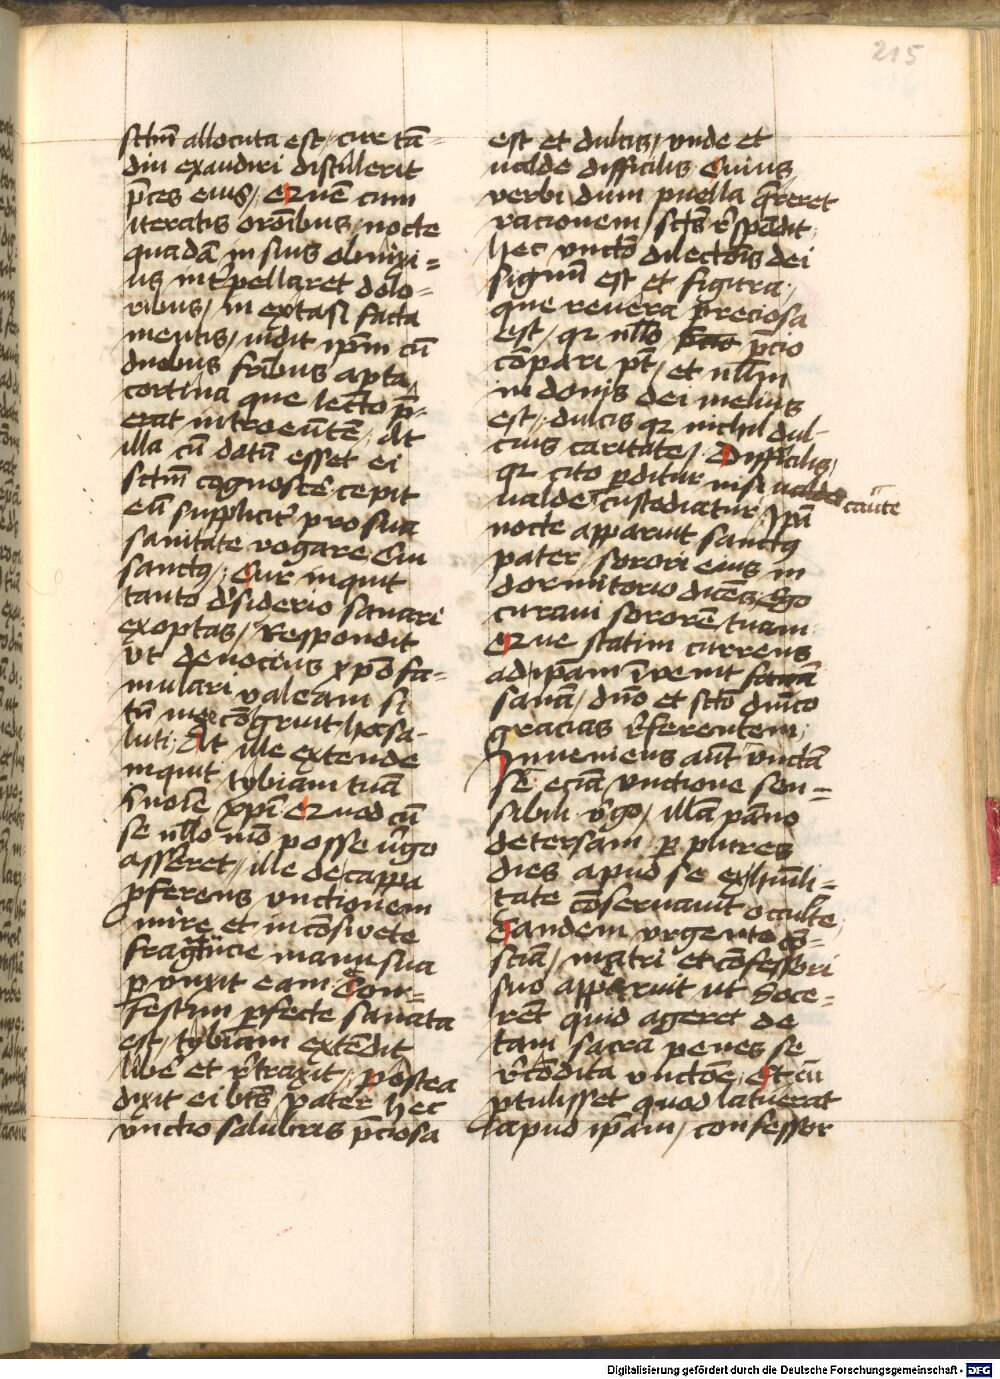 215
sctm̄ allocuta est / cur tā=
diu exaudiri distulerit
p̄ces eius / Que cum
iteratis orōnibus / nocte
quadā in suis obnixi=
us int̄pellaret dolo=
ribus / in extasi facta
mentis / uidit ip̄m cū
duobus fr̄ibus apta
cortina que lecto p̄=
erat introeūtē / At
illa cū datū esset ei
sctm̄ cognoscē cepit
eū supplicit̄ pro sua
sanitate rogare Cui
sanctus / Cur inquit
tanto d̄siderio sanari
exoptas / Respondit
Ut deuocius xp̄o fa=
mulari valeam si
tn̄ mee cōgruit hoc sa=
luti / At ille extende
inquit tybiam tuā
in noīe xp̄i Quod cū
se nllo mō posse v̄go
asseret / ille de cappa
p̄ferens unctionem
mire et incōswete
fragr̄acie manu sua
p̄unxit eam Con=
festim p̄fecte sanata
est / tybiam extēdit
libē et r̄traxit / postea
dixit ei bt̄s pater hec
unctio salubris p̄ciosa
est et dulcis / unde et
ualde difficilis Cuius
verbi dum puella q̄reret
racionem / sct̄s r̄spōdit
hec unctō dilectōis dei
signū est et figura /
que reuera preciosa
est / qr nllo p̄cio
cōpari pt̄ / et nllm
in donis dei melius
est / dulcis qr nichil dul=
cius caritate / Difficilis
qr cito p̄ditur nisi
ualde custodiatur / Ipā caute
nocte apparuit sanctus
pater sorori eius in
dormitorio dicēs / Ego
curaui sororē tuam
Que statim currens
ad ipam īvenit
sanā / dn̄o et scto dn̄ico
gracias r̄ferentem
Inueniens aūt unctā
se eciā unctione sen=
sibili v̄go / illā pāno
detersam p̄ plures
dies apud se ex humili=
tate cōseruauit occulte
Tandem urgente cō=
sciā / matri et cōfessori
suo apparuit ut doce=
rēt quid ageret de
tam sacra penes se
r̄cōdita unctōe / Et cū
p̄tulisset quod latuerat
apud ipam / confessor
Digitalisierung gefördert durch die Deutsche Forschungsgemeinschaft - DFG